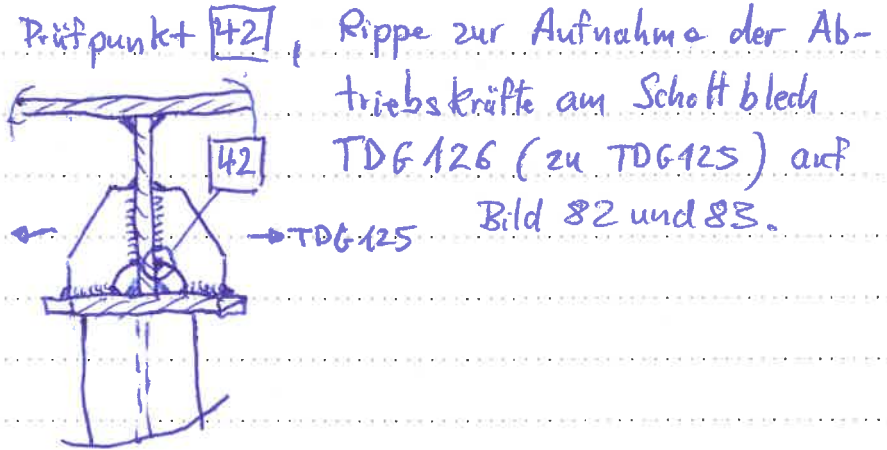 Prüfpunkt 42, Rippe zur Aufnahme der Ab-
triebskräfte am Schottblech
42 TDG126 (zu TDG125) auf
TDG125 Bild 82 und 83.